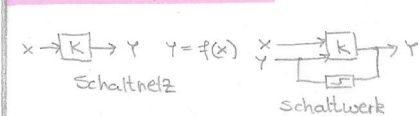 X → K → Y Y = f(x) X → K → Y
Y
Schaltnetz
Schaltwerk